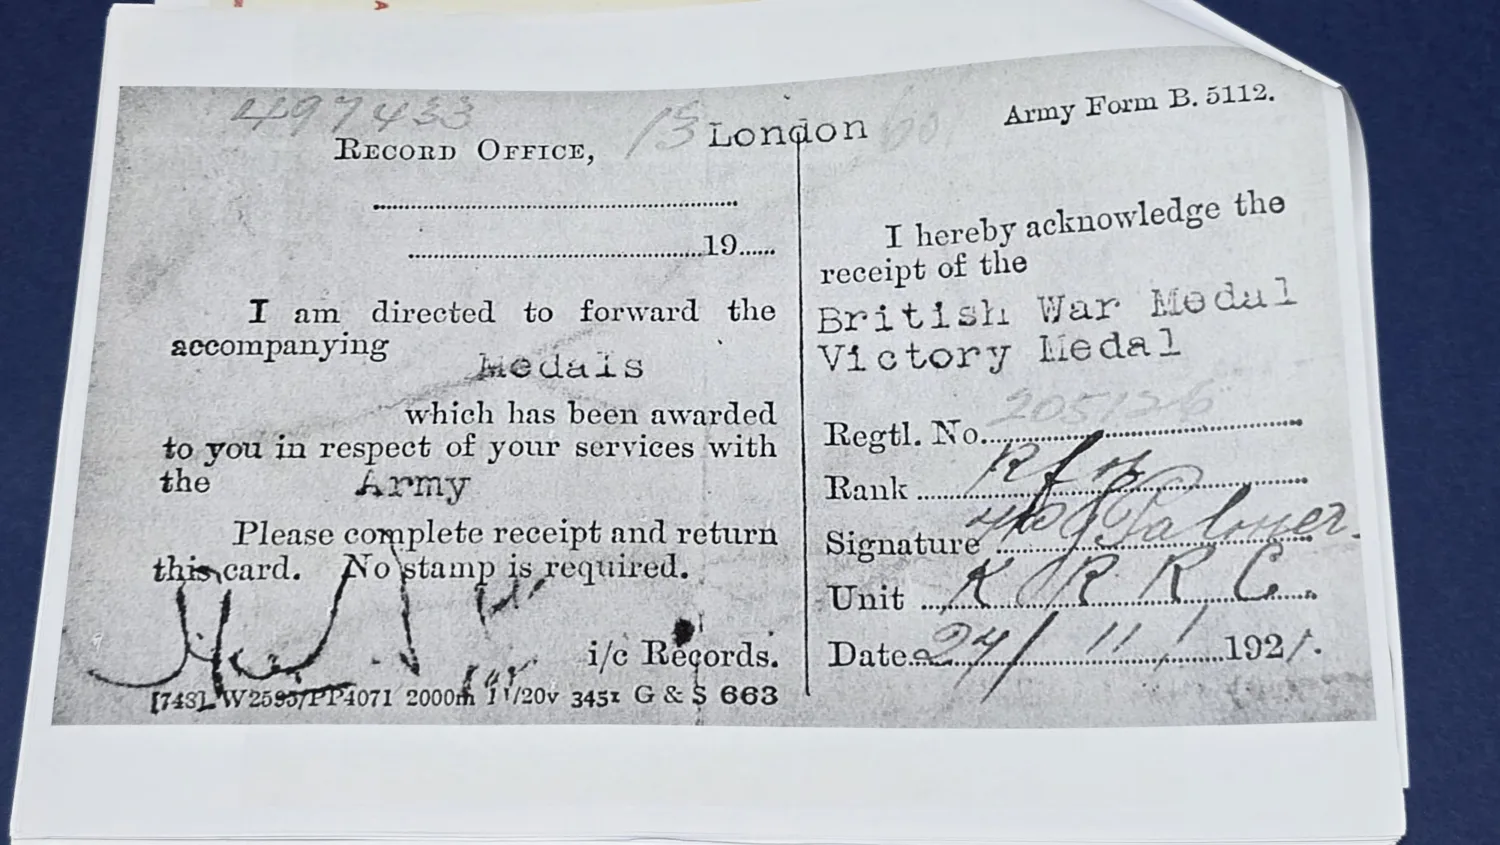 497433
RECORD OFFICE, London
Army Form B. 5112.
19
I am directed to forward the
accompanying
Medals
which has been awarded
to you in respect of your services with
the Army
Please complete receipt and return
this card. No stamp is required.
i/c Records.
[743] W2595/PP4071 2000m 11/20v 3451 G & S 663
I hereby acknowledge the
receipt of the
British War Medal
Victory Medal
Regtl. No. 205126
Rank Rfn
Signature Palmer.
Unit K R R C
Date 24/11/1921.